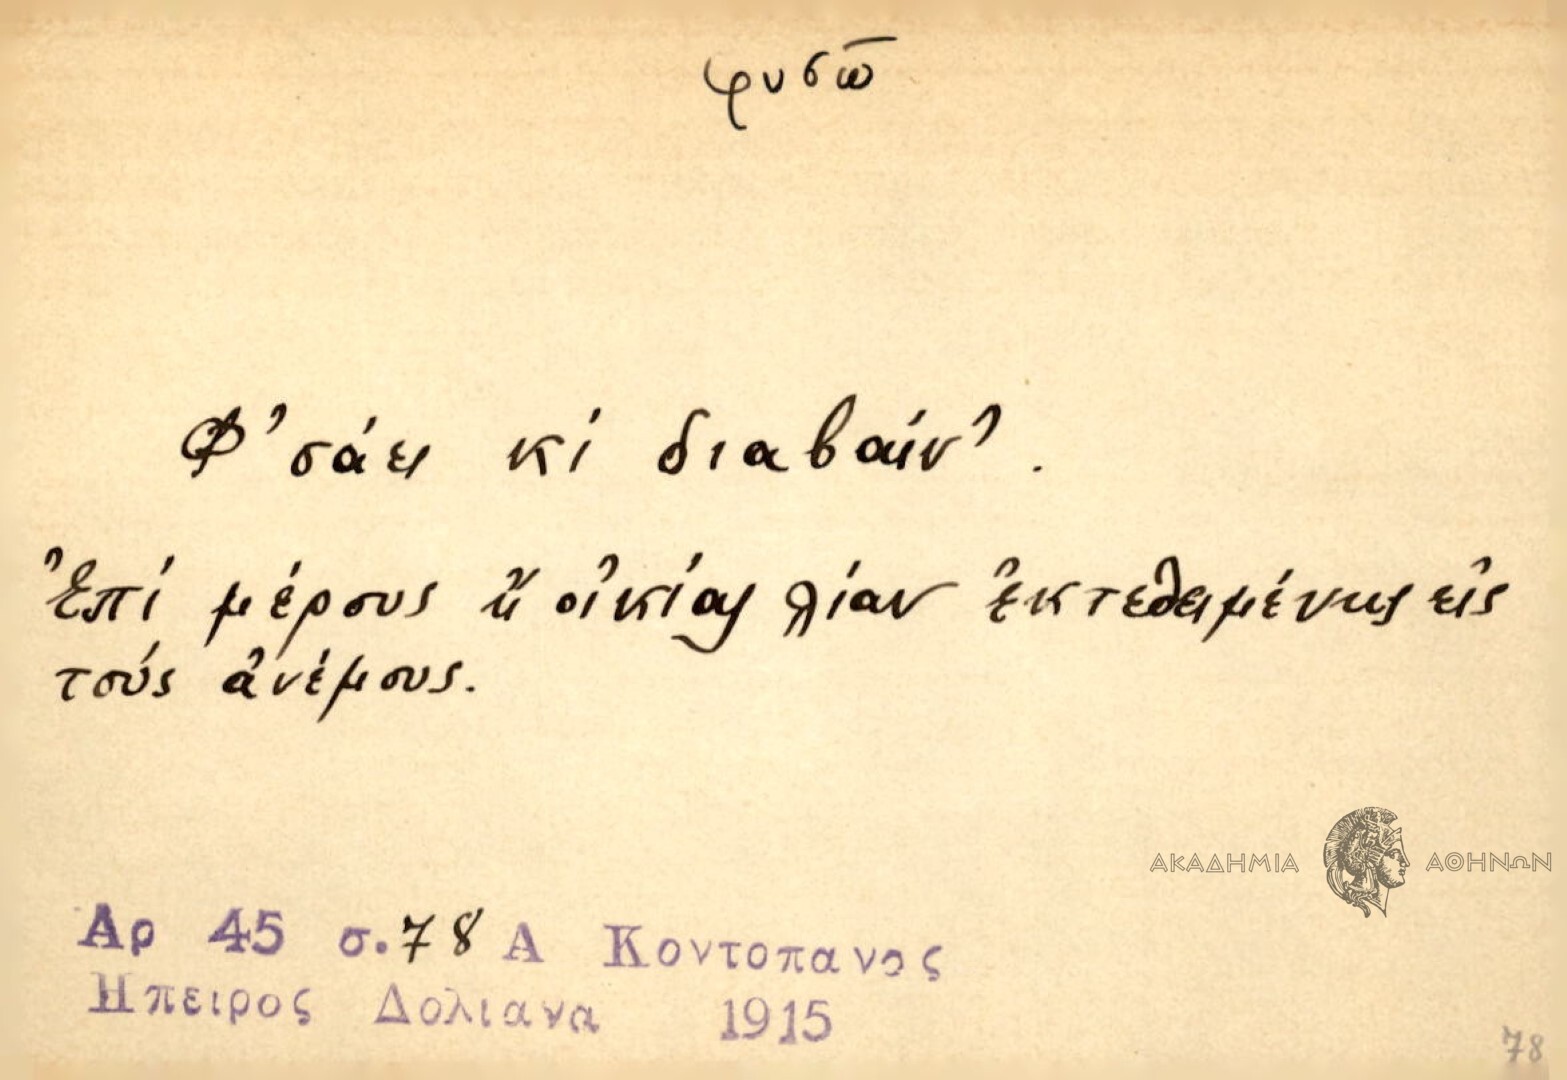 φυσῶ
Φ'σάει κί διαβαίν'.
Ἐπί μέρους ἤ οἰκίας λίαν ἐκτεθειμένης εἰς
τούς ἀνέμους.
ΑΚΑΔΗΜΙΑ ΑΘΗΝΩΝ
Αρ 45 σ. 78 Α Κοντοπανος
Ηπειρος Δολιανα 1915
78